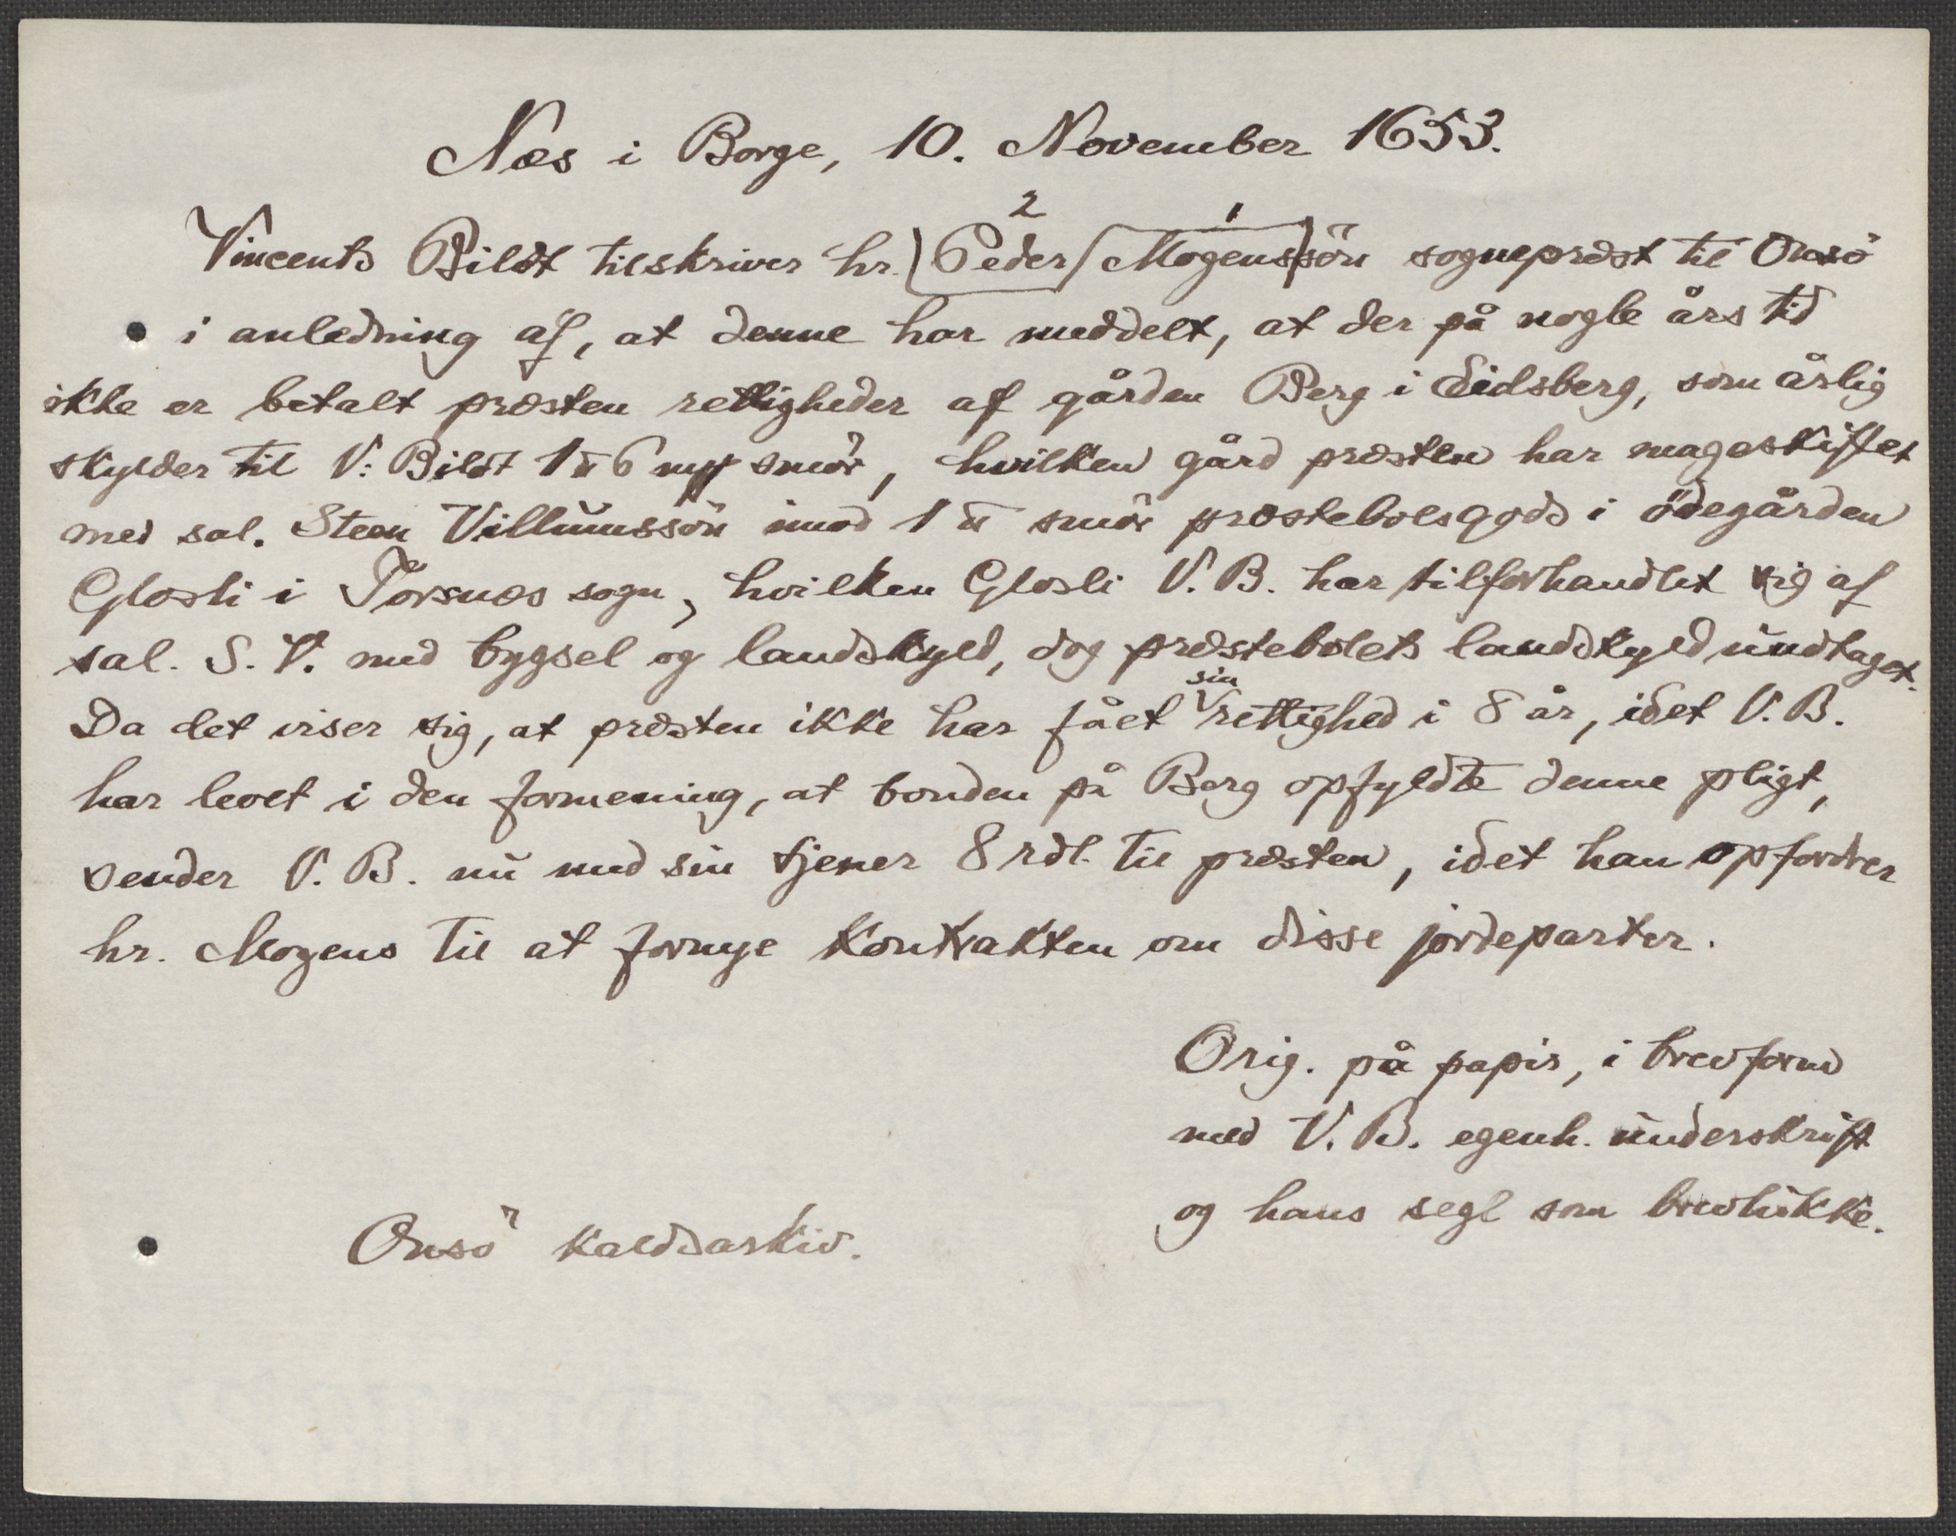 Næs i Borge, 10. November 1653.
2 1
Vincents Bildt tilskriver hr. Peder Mogenssön sogneprest til Onsö
i anledning af, at denne har meddelt, at der på nogle års tid
ikke er betalt præsten rettigheder af gården Berg i Eidsberg, som årlig
skylder til V: Bildt 1 ℔ 6 mrk smör, hvilken gård præsten har mageskiftet
med sal. Steen Villumssön imod 1 ℔ smör præstebolesgods i ödegården
Glosli i Torsnæs sogn, hvilken Glosli V. B. har tilforhandlet sig af
sal. S. V. med bygsel og landskyld, dog præstebolets landskyld undtaget.
sin
Da det viser sig, at præsten ikke har fået rettighed i 8 år, idet V. B.
har levet i den formening, at bonden på Berg opfyldte denne pligt,
sender V. B. nu med sin tjener 8 rdl. til præsten, idet han opfordrer
hr. Mogens til at fornye kontrakten om disse jordeparter.
Orig. på papir, i brevform
med V. B. egenh. underskrift
og hans segl som brevlukke.
Onsö kaldsarkiv.